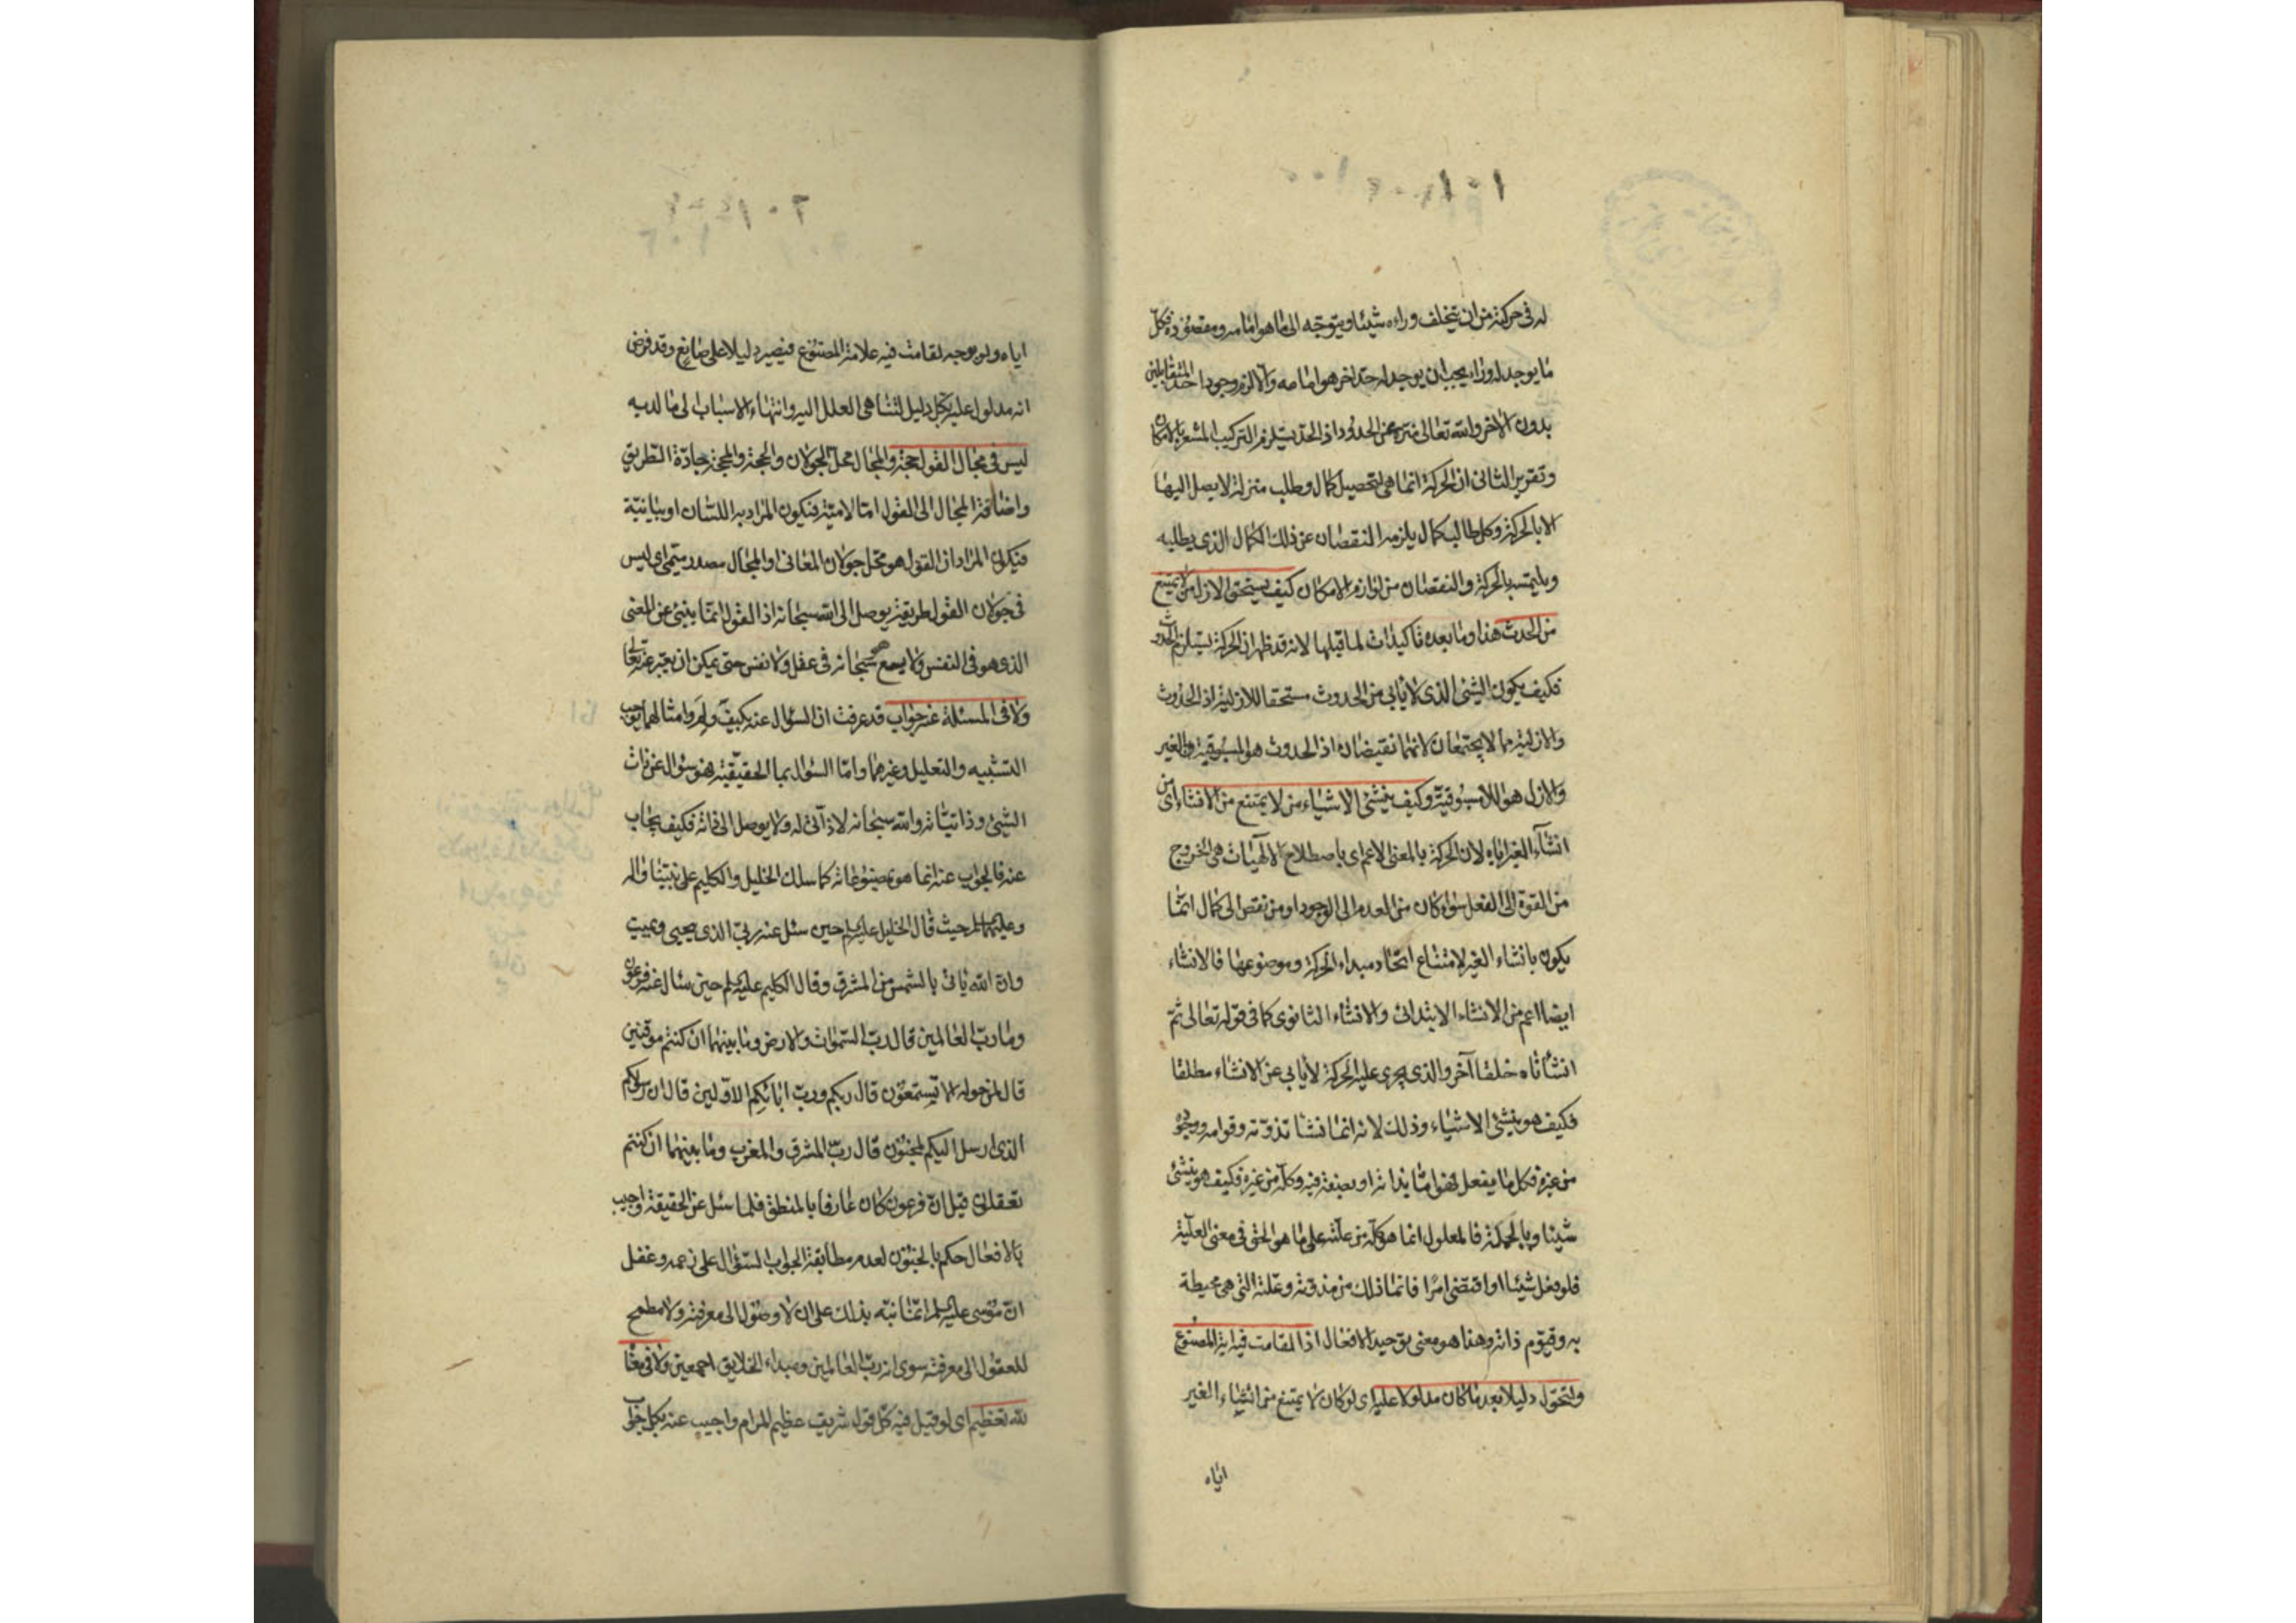 له فى حركته من ان يتخلف وراءه شيئا ويتوجه الى ما هو امامه ومقصوده فكل
ما يوجد له وراء يجب ان يوجد له حد اخر هو امامه والا لزم وجود احد المتقابلين
بدون الاخر والله تعالى منزه عن الحدود اذ الحد يستلزم التركيب المشعر بالامكان
وتقرير الثانى ان الحركة انما هى لتحصيل كمال وطلب منزلة لا يصل اليها
الا بالحركة وكل طالب كمال يلزمه النقصان عن ذلك الكمال الذى يطلبه
ويلتمسه بالحركة والنقصان من لوازم الامكان كيف يستحق الازل من لا يمتنع
من الحدث هذا وما بعده تاكيدات لما قبلها لانه قد ظهر ان الحركة يستلزم الحدوث
فكيف يكون الشئ الذى لا يابى من الحدوث مستحقا للازلية اذ الحدوث
والازلية مما لا يجتمعان لانهما نقيضان اذ الحدوث هو المسبوقية بالغير
والازل هو اللامسبوقية وكيف ينشئ الاشياء من لا يمتنع من الانشاء اى من
انشاء الغير اياه لان الحركة بالمعنى الاعم اى باصطلاح الالهيات هى الخروج
من القوة الى الفعل سواء كان من العدم الى الوجود او من نقص الى كمال انما
يكون بانشاء الغير لامتناع اتحاد مبداء الحركة وموضوعها فالانشاء
ايضا اعم من الانشاء الابتدائى والانشاء الثانوى كما فى قوله تعالى ثم
انشأناه خلقا آخر والذى يجرى عليه الحركة لا يابى عن الانشاء مطلقا
فكيف هو ينشئ الاشياء وذلك لانه انما نشا تذوته وقوامه ووجوده
من غيره فكل ما يفعل فهو اما بذاته او بصفة فيه وكله من غيره فكيف هو ينشئ
شيئا وبالجملة فالمعلول انما هو كله من علته على ما هو الحق فى معنى العلية
فلو فعل شيئا او اقتضى امرا فانما ذلك من مذوته وعلته التى هى محيطة
به وقيوم ذاته وهذا هو معنى توحيد الافعال اذا لقامت فيه اية المصنوع
ولتحول دليلا بعد ما كان مدلولا عليه اى لو كان لا يمتنع من انشاء الغير
اياه
اياه ولو بوجه لقامت فيه علامة المصنوع فيصير دليلا على صانع وقد فرض
انه مدلول عليه بكل دليل لتناهى العلل اليه وانتهاء الاسباب الى ما لديه
ليس فى مجال القول حجة والمجال محل الجولان والحجة والمحجة جادة الطريق
واضافة المجال الى القول اما لامية فيكون المراد به اللسان او بيانية
فيكون المراد ان القول هو محل جولان المعانى والمجال مصدر ميمى اى ليس
فى جولان القول طريقة يوصل الى الله سبحانه اذ القول انما ينبئ عن المعنى
الذى هو فى النفس ولا يسع هو سبحانه فى عقل ولا نفس حتى يمكن ان يعبر عنه تعالى
ولا فى المسئلة عنه جواب قد عرفت ان السؤال عنه بكيف ولم وامثالهما يوجب
التشبيه والتعليل وغيرهما واما السؤال بما الحقيقية فهو سؤال عن ذات
الشئ وذاتياته والله سبحانه لا ذاتى له ولا يوصل الى ذاته فكيف يجاب
عنه فالجواب عنه انما هو بمصنوعاته كما سلك الخليل والكليم على نبينا واله
وعليهما السلم حيث قال الخليل عليه السلم حين سئل عنه ربى الذى يحيى ويميت
وان الله ياتى بالشمس من المشرق وقال الكليم عليه السلم حين سال عنه فرعون
وما رب العالمين قال رب السموات والارض وما بينهما ان كنتم موقنين
قال لمن حوله الا تستمعون قال ربكم ورب ابائكم الاولين قال ان رسولكم
الذى ارسل اليكم لمجنون قال رب المشرق والمغرب وما بينهما ان كنتم
تعقلون قيل ان فرعون كان عارفا بالمنطق فلما سئل عن الحقيقة واجيب
بالافعال حكم بالجنون لعدم مطابقة الجواب السؤال على زعمه وغفل
ان موسى عليه السلم انما نبه بذلك على ان لا وصول الى معرفته ولا مطمح
للعقول الى معرفته سوى انه رب العالمين ومبداء الخلايق اجمعين ولا فى معناه
لله تعظيم اى لو قيل فيه كل قول شريف عظيم المرام واجيب عنه بكل جواب